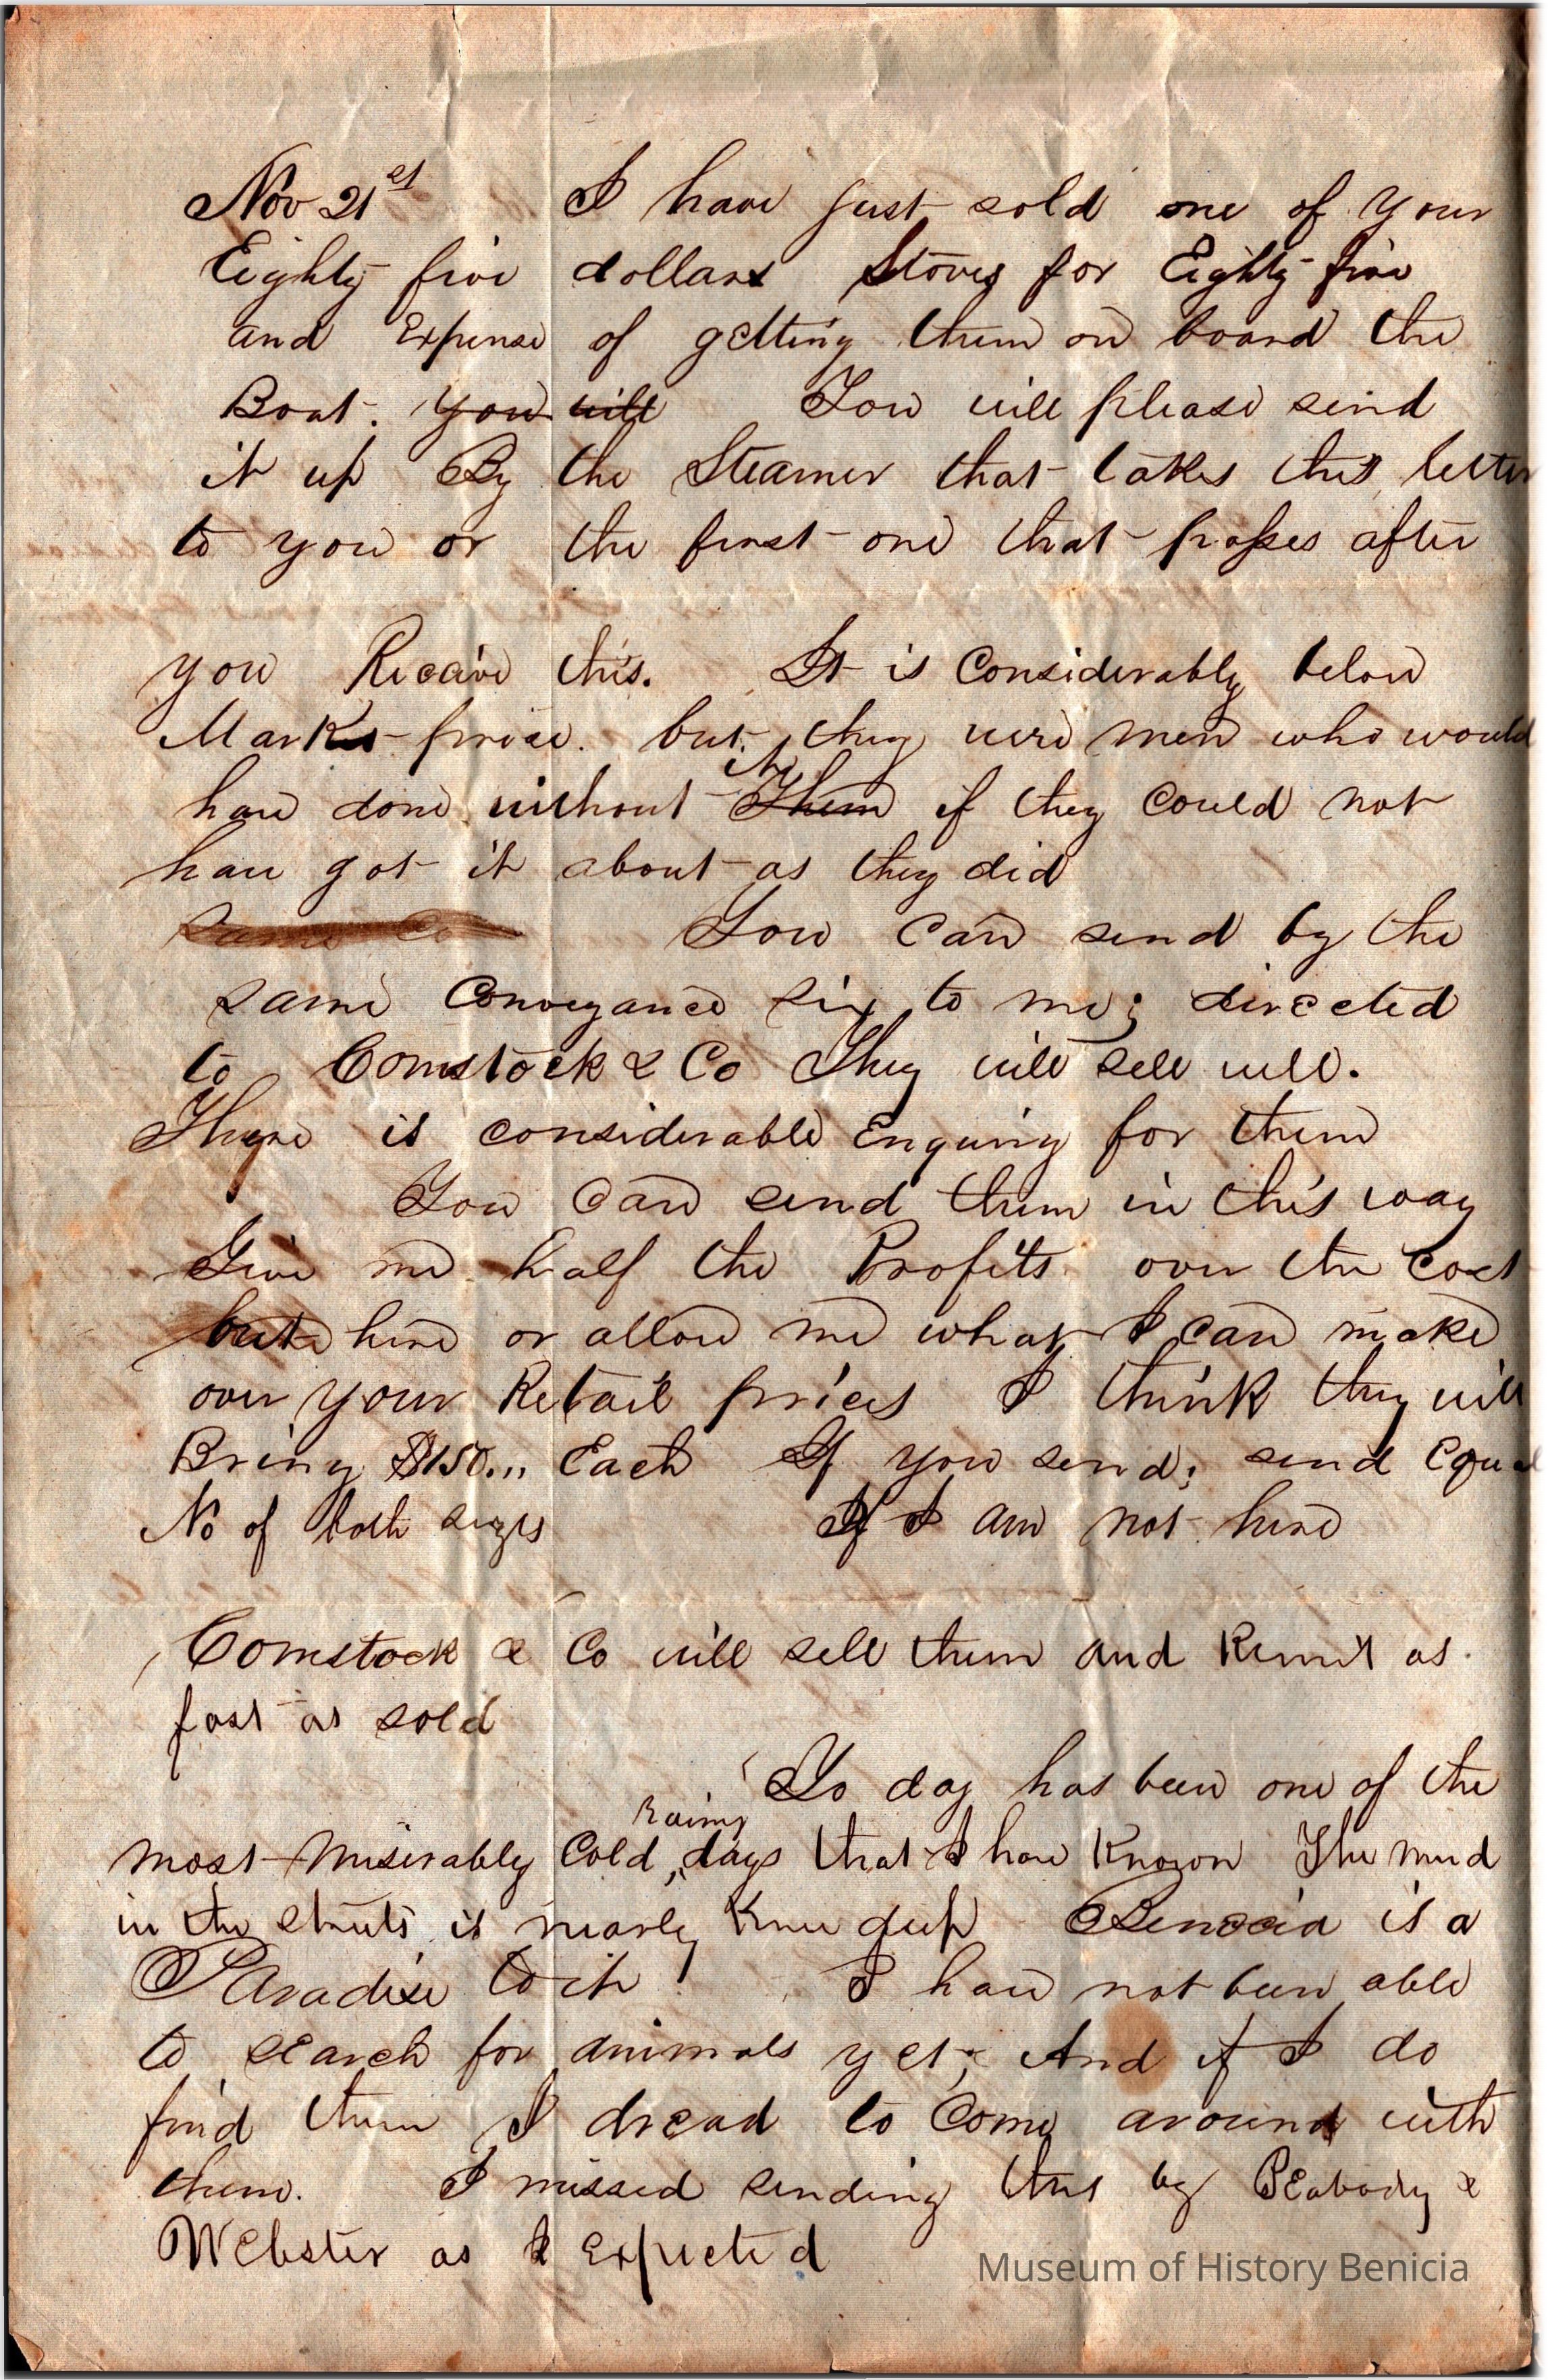 Nov 21st I have just sold one of your
Eighty five dollars Stoves for Eighty five
and Expense of getting them on board the
Boat. you will You will please send
it up By the Steamer that takes this letter
to you or the first one that passes after
you Receive this. It is Considerably below
Market price. but they were men who would
have done without it Them if they could not
have got it about as they did
Same Co You can send by the
same Conveyance six to me; directed
to Comstock & Co They will sell well.
There is considerable Enquiry for them
You can send them in this way
Give me half the Profits over the Cost
here or allow me what I can make
over your Retail prices I think they will
Bring $150.,, Each If you send; send Equal
No of both sizes If I am not here
Comstock & Co will sell them and Remit as
fast as sold
To day has been one of the
most miserably Cold, Rainy days that I have Known The mud
in the streets is nearly Knee deep Benecia is a
Paradise to it I have not been able
to search for animals yet; And if I do
find them I dread to Come around with
them. I missed sending this by Peabody &
Webster as I Expected
Museum of History Benicia